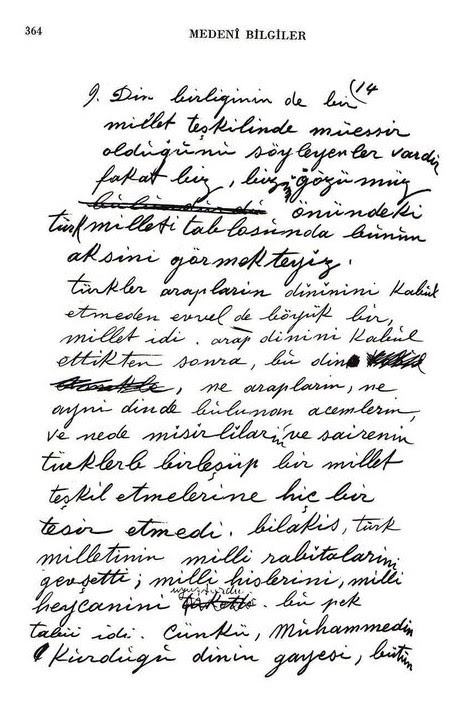 364
MEDENÎ BİLGİLER
(14
9. Din birliginin de bir
millet teşkilinde müessir
olduğunu söyleyenler vardır
fakat biz, bizim gözümüz
önündeki
türk milleti tablosunda bunun
aksini görmekteyiz.
türkler arapların dininini kabul
etmeden evvel de böyük bir,
millet idi. arap dinini kabul
ettikten sonra, bu din
, ne arapların, ne
ayni dinde bulunan acemlerin,
ve nede mısırlıların ve sairenin
türklerle birleşüp bir millet
teşkil etmelerine hiç bir
tesir etmedi. bilakis, türk
milletinin milli rabıtalarını
gevşetti; milli hislerini, milli
uyuşturdu
heycanını . bu pek
tabii idi. Çünkü, Muhammedin
kurduğu dinin gayesi, bütün